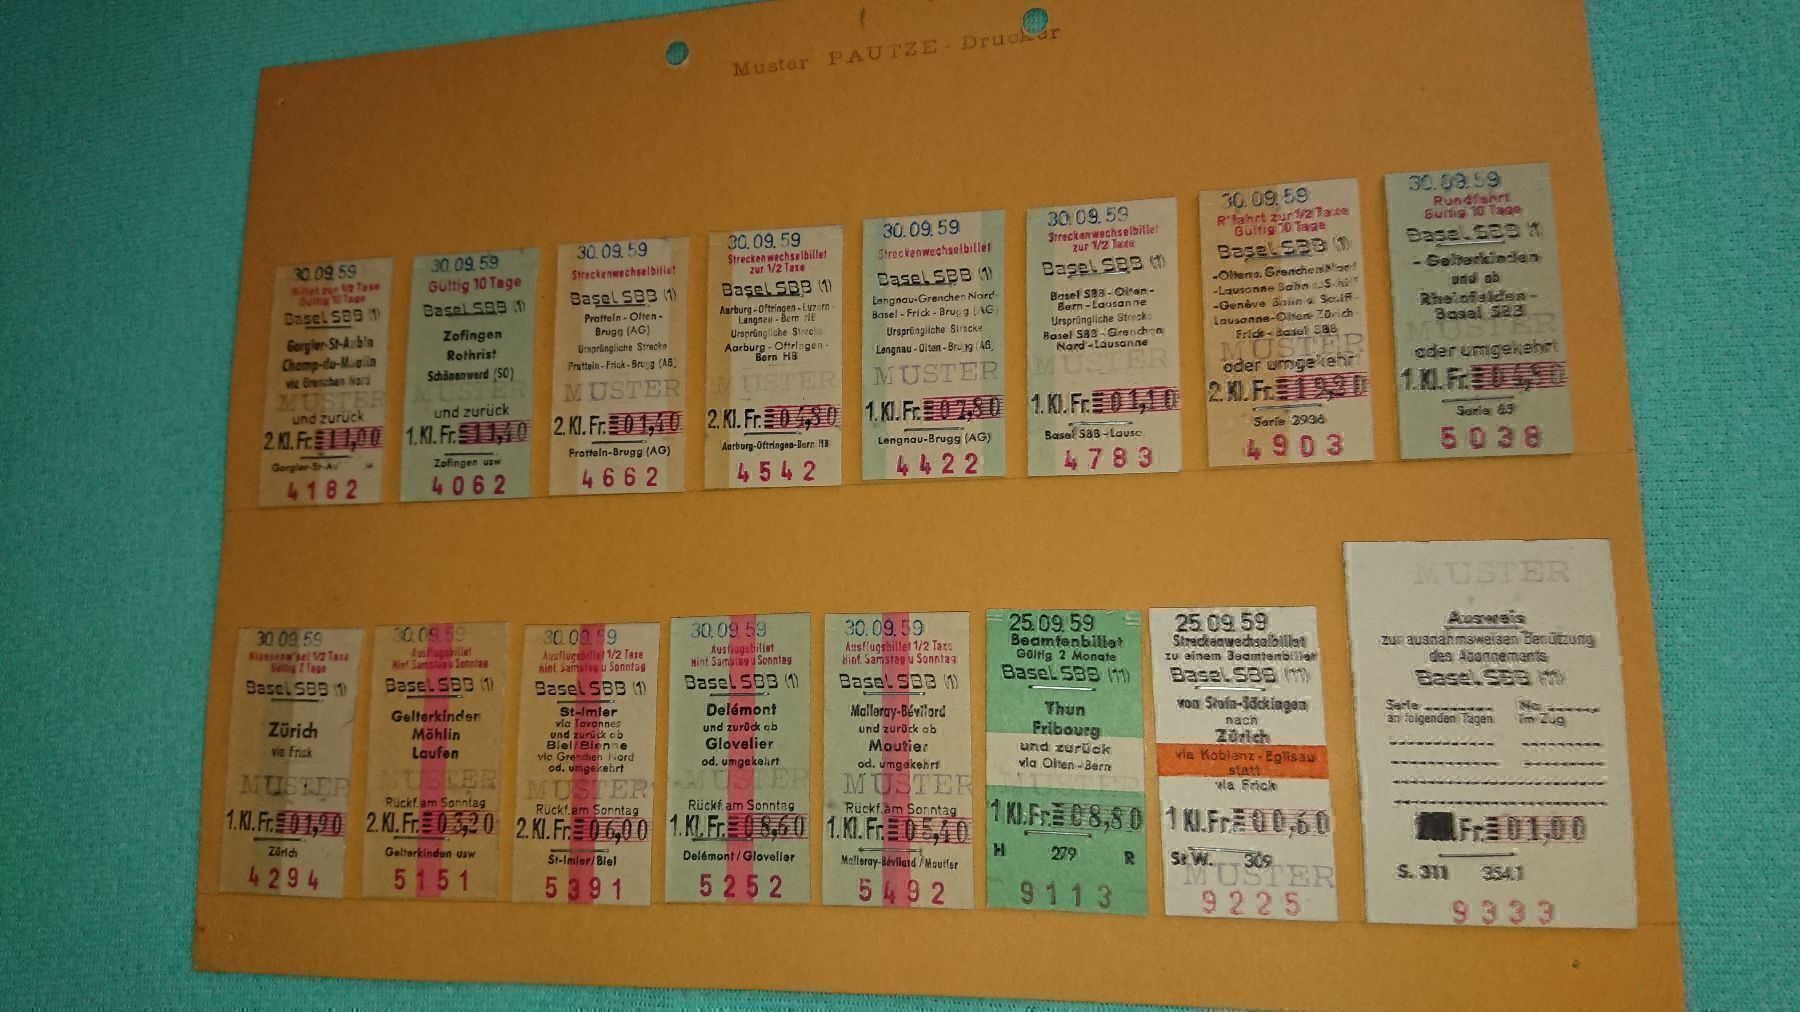 Muster PAUTZE-Drucker
30.09.59
Billet zur 1/2 Taxe
Gültig 10 Tage
Basel SBB (1)
Gorgier-St-Aubin
Champ-du-Moulin
via Grenchen Nord
MUSTER
und zurück
2. Kl. Fr. 11,00
Gorgier-St-Au
4182
30.09.59
Gültig 10 Tage
Basel SBB (1)
Zofingen
Rothrist
Schönenwerd (SO)
MUSTER
und zurück
1. Kl. Fr. 11,40
Zofingen usw
4062
30.09.59
Streckenwechselbillet
Basel SBB (1)
Pratteln-Olten-
Brugg (AG)
Ursprüngliche Strecke
Pratteln-Frick-Brugg (AG)
MUSTER
2. Kl. Fr. 01,40
Pratteln-Brugg (AG)
4662
30.09.59
Streckenwechselbillet
zur 1/2 Taxe
Basel SBB (1)
Aarburg-Oftringen-Luzern-
Langnau-Bern HB
Ursprüngliche Strecke
Aarburg-Oftringen-
Bern HB
MUSTER
2. Kl. Fr. 04,80
Aarburg-Oftringen-Bern HB
4542
30.09.59
Streckenwechselbillet
Basel SBB (1)
Lengnau-Grenchen Nord-
Basel-Frick-Brugg (AG)
Ursprüngliche Strecke
Lengnau-Olten-Brugg (AG)
MUSTER
1. Kl. Fr. 07,80
Lengnau-Brugg (AG)
4422
30.09.59
Streckenwechselbillet
zur 1/2 Taxe
Basel SBB (1)
Basel SBB-Olten-
Bern-Lausanne
Ursprüngliche Strecke
Basel SBB-Grenchen
Nord-Lausanne
MUSTER
1. Kl. Fr. 01,10
Basel SBB-Lausa
4783
30.09.59
R'fahrt zur 1/2 Taxe
Gültig 10 Tage
Basel SBB (1)
-Olten o. Grenchen Nord
-Lausanne Bahn o. Schiff
-Genève Bahn o. Schiff-
Lausanne-Olten-Zürich-
Frick-Basel SBB
MUSTER
oder umgekehrt
2. Kl. Fr. 19,20
Serie 2936
4903
30.09.59
Rundfahrt
Gültig 10 Tage
Basel SBB (1)
-Gelterkinden
und ab
Rheinfelden-
Basel SBB
MUSTER
oder umgekehrt
1. Kl. Fr. 04,80
Serie 65
5038
30.09.59
Klassenw'sel 1/2 Taxe
Gültig 2 Tage
Basel SBB (1)
Zürich
via Frick
MUSTER
1. Kl. Fr. 01,90
Zürich
4294
30.09.59
Ausflugsbillet
Hinf. Samstag u Sonntag
Basel SBB (1)
Gelterkinden
Möhlin
Laufen
MUSTER
Rückf. am Sonntag
2. Kl. Fr. 03,20
Gelterkinden usw
5151
30.09.59
Ausflugsbillet 1/2 Taxe
Hinf. Samstag u Sonntag
Basel SBB (1)
St-Imier
via Tavannes
und zurück ab
Biel/Bienne
via Grenchen Nord
od. umgekehrt
MUSTER
Rückf. am Sonntag
2. Kl. Fr. 06,00
St-Imier/Biel
5391
30.09.59
Ausflugsbillet
Hinf. Samstag u Sonntag
Basel SBB (1)
Delémont
und zurück ab
Glovelier
od. umgekehrt
MUSTER
Rückf. am Sonntag
1. Kl. Fr. 08,60
Delémont/Glovelier
5252
30.09.59
Ausflugsbillet 1/2 Taxe
Hinf. Samstag u Sonntag
Basel SBB (1)
Malleray-Bévilard
und zurück ab
Moutier
od. umgekehrt
MUSTER
Rückf. am Sonntag
1. Kl. Fr. 05,40
Malleray-Bévilard/Moutier
5492
25.09.59
Beamtenbillet
Gültig 2 Monate
Basel SBB (11)
Thun
Fribourg
und zurück
via Olten-Bern
MUSTER
1 Kl. Fr. 08,80
H 279 R
9113
25.09.59
Streckenwechselbillet
zu einem Beamtenbillet
Basel SBB (11)
von Stein-Säckingen
nach
Zürich
via Koblenz-Eglisau
statt
via Frick
1 Kl. Fr. 00,60
St W. 309
MUSTER
9225
MUSTER
Ausweis
zur ausnahmsweisen Benützung
des Abonnements
Basel SBB (11)
Serie No
an folgenden Tagen im Zug
Fr. 01,00
S. 311 354.1
9333